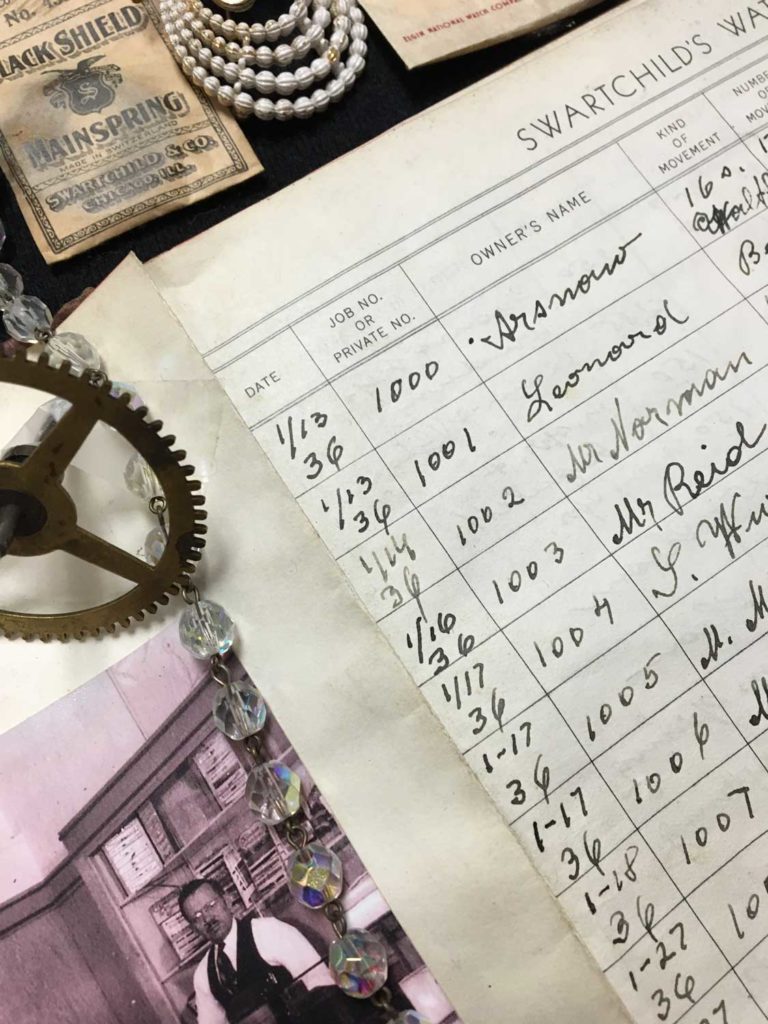 No.
BLACK SHIELD
S
MAINSPRING
MADE IN SWITZERLAND
SWARTCHILD & CO.
CHICAGO, ILL.
ELGIN NATIONAL WATCH COMPANY
SWARTCHILD'S WAT
DATE
JOB NO.
OR
PRIVATE NO.
OWNER'S NAME
KIND
OF
MOVEMENT
NUMBE
OF
MOV
1/13
36
1000
Arsnow
16 s.
1/13
36
1001
Leonard
1/14
36
1002
Mr Norman
1/16
36
1003
Mr Reid
1/17
36
1004
1-17
36
1005
M. M
1-17
36
1006
M
1-18
36
1007
1-27
36